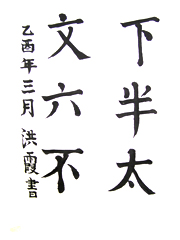 下半太
文六不
乙酉年三月洪霞書